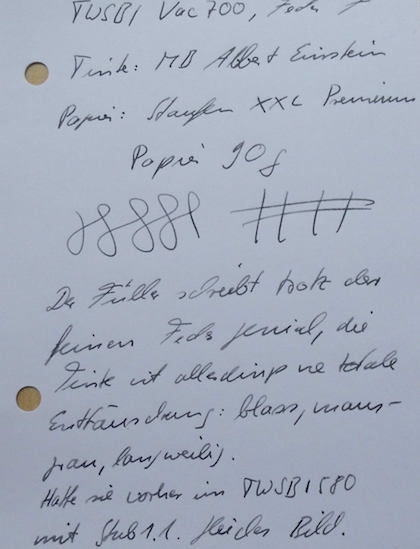 TWSBI Vac 700, Feder F
Tinte: MB Albert Einstein
Papier: Staufen XXL Premium
Papier 90g
Der Füller schreibt trotz der
feinen Feder genial, die
Tinte ist allerdings ne totale
Enttäuschung: blass, maus-
grau, langweilig.
Hatte sie vorher im TWSBI 580
mit Stub 1.1. Gleiches Bild.